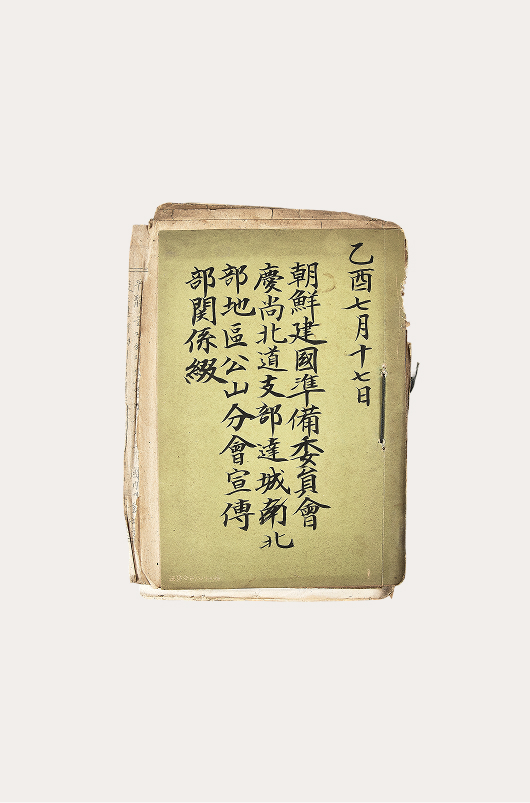 乙酉七月十七日
朝鮮建國準備委員會
慶尚北道支部達城南北
部地區公山分會宣傳
部関係綴